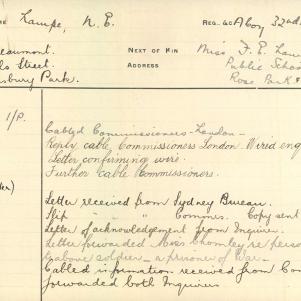 Lampe, N. E. REG. A Coy 32nd
Beaumont. NEXT OF KIN Miss F. E. Lam
Street. ADDRESS Public School
sbury Park. Rose Park
1/P.
Cabled Commissioners London
Reply cable, Commissioners London. Wired enq
Letter confirming wire.
Further cable Commissioners.
Letter received from Sydney Bureau.
Slip " " Commrs. Copy sent
Letter of acknowledgement from Inquirer.
Letter forwarded Miss Chomley re
above soldier - a prisoner of War -
Cabled information received from Com
forwarded both Inquirers